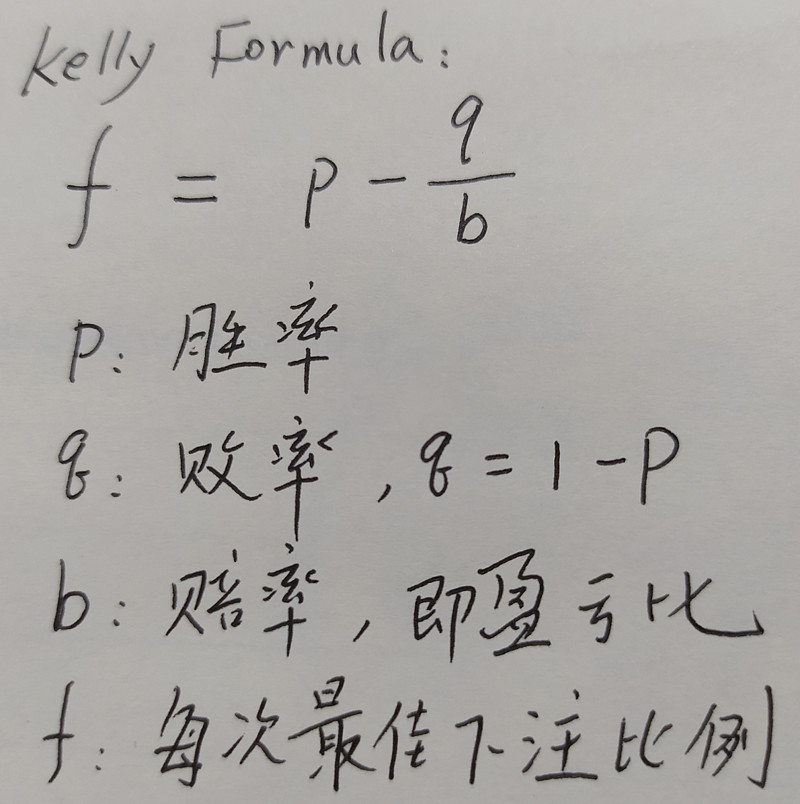 Kelly Formula:
f = p - q/b
p: 胜率
q: 败率, q = 1 - p
b: 赔率, 即盈亏比
f: 每次最佳下注比例